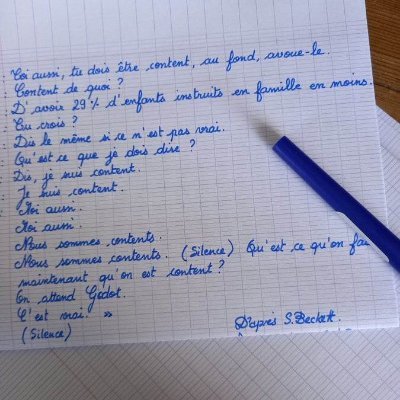 Toi aussi, tu dois être content, au fond, avoue-le.
Content de quoi ?
D'avoir 29% d'enfants instruits en famille en moins.
Tu crois ?
Dis le même si ce n'est pas vrai.
Qu'est ce que je dois dire ?
Dis, je suis content.
Je suis content.
Moi aussi.
Moi aussi.
Nous sommes contents.
Nous sommes contents. (Silence) Qu'est ce qu'on fai
maintenant qu'on est content ?
On attend Godot.
C'est vrai. »
(Silence)
D'après S. Beckett.